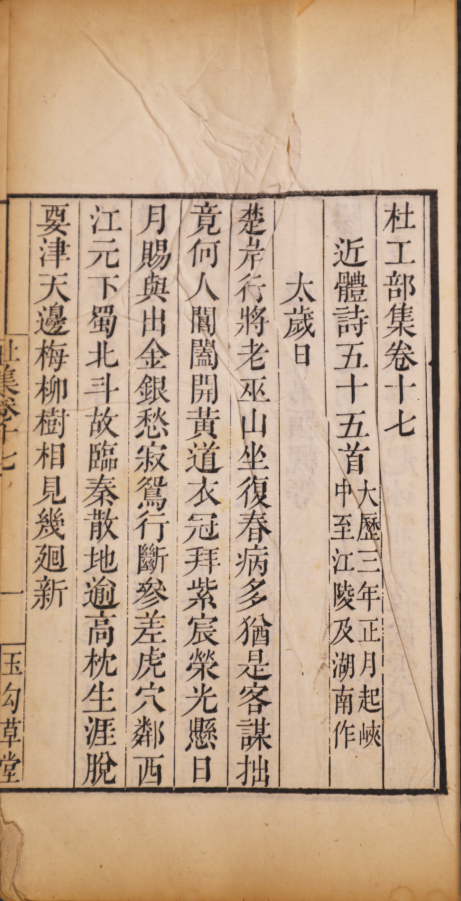 杜工部集卷十七
近體詩五十五首大歷三年正月起峽
中至江陵及湖南作
太歲日
楚岸行將老巫山坐復春病多猶是客謀拙
竟何人閶闔開黃道衣冠拜紫宸榮光懸日
月賜與出金銀愁寂鴛行斷參差虎穴鄰西
江元下蜀北斗故臨秦散地逾高枕生涯脫
要津天邊梅柳樹相見幾廻新
杜集卷十七
一
玉勾草堂